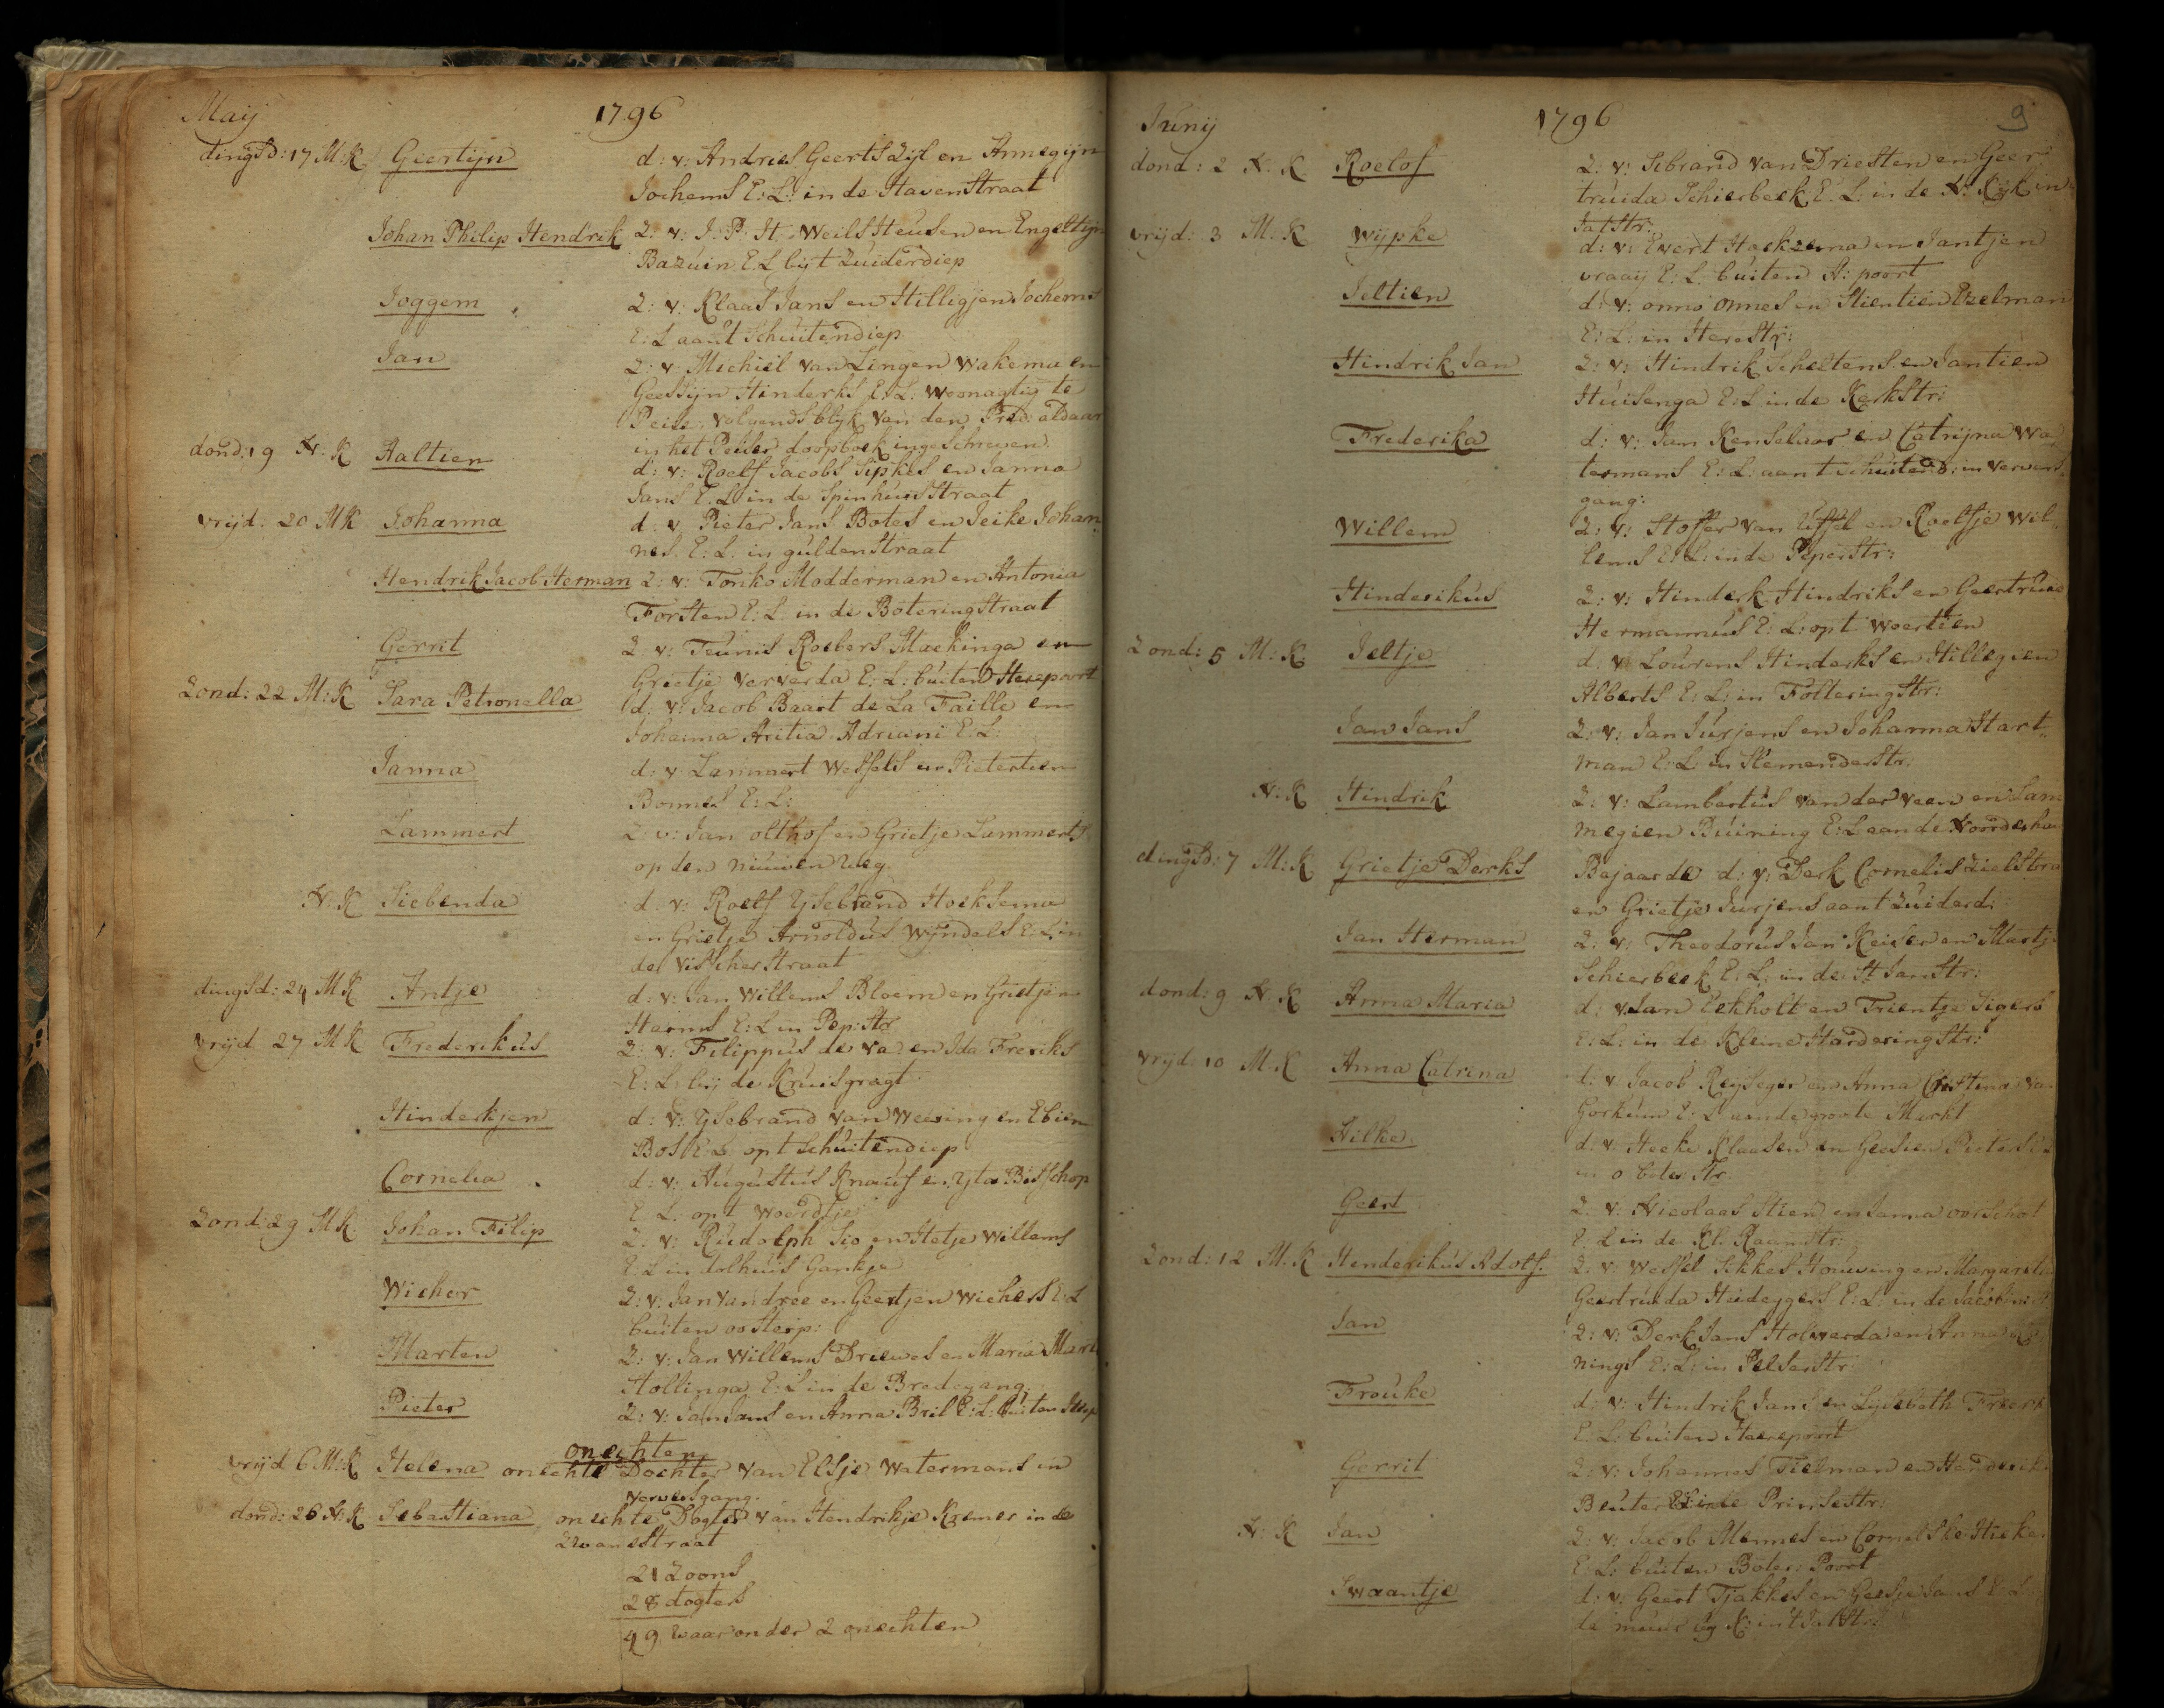 Maij 1796
dingsd: 17 M:K Geertijn d: v: Andries Geerts Zijl en Annegijn
Jochems E: L: in de Haven Straat
Johan Philip Hendrik Z: v: J: P: H. Weils Heusen en Engeltijn
Bazuin E. L bij t Zuiderdiep
Joggem Z: v: Klaas Jans en Hilligjen Jochems
E: L aant Schuitendiep
Jan Z: v: Michiel van Lingen Wakema en
Geessijn Hinderks E. L: woonagtig te
Peise, volgends blijk van den Pred: aldaar
in het Peiser doopboek ingeschreven.
dond: 19 N: K Aaltien d: v: Roelf Jacobs Sipkes en Janna
Jans E: L in de Spinhuis Straat
vrijd: 20 M K Johanna d: v: Pieter Jans Botes en Jeike Johan
nes. E: L: in gulden Straat
Hendrik Jacob Herman Z: v: Tonko Modderman en Antonia
Forsten E: L: in de Botering Straat
Gerrit Z v: Teunis Roebers Mackinga en
Grietje Ververda E: L: buiten Herepoort
Zond: 22 M: K Sara Petronella d: v: Jacob Baart de La Faille en
Johanna Aritia Adriani E: L:
Janna d: v: Lammert Wessels en Pietertien
Bonnes E: L:
Lammert Z: v: Jan olthof en Grietje Lammerts
op den nieuwen weg
N: K Siebenda d: v: Roelf Ysebrand Hoeksema
en Grietje Arnoldus Wijndels E: L in
de Visscher Straat
dingsd: 24 M K Antje d: v: Jan Willems Bloem en Grietjen
Harms E: L in Pep: Str
vrijd 27 M K Frederikus Z: v: Filippus de Va: en Ida Freriks
E: L: bij de Kruisgragt
Hinderkjen d: v: Ysebrand van Weering en Ebien
Bos E: L: opt Schuitendiep
Cornelia d: v: Augustus Knaus en Yta Bisschop
E: L: opt Woerdtje
Zond: 29 M K: Johan Filip Z: v: Rudolph Sio en Hetje Willems
E: L in dolhuis Gankje
Wicher Z: v: Jan van dree en Geertjen Wichers E: L
buiten oosterp:
Marten Z: v: Jan Willems Driewes en Maria Mart
Hollinga E: L in de Bredegang.
Pieter Z: v: Jan Jans en Anna Bril E: L: buiten Heerp
onechten
vrijd 6 M: K Helena onechte Dochter van Elsje Watermans in
Ververs gang.
dond: 26 N: K Sebastiana onechte Dogter van Hendrikje Kremer in de
Zwanestraat
21 Zoons
28 dogters
49 waar onder 2 onechten
Junij 1796 9
dond: 2 N: K Roelof Z: v: Sebrand van Driesten en Geer
truida Schierbeek E: L: in de N: Kijk in
Jatstr:
vrijd: 3 M: K Wijpke d: v: Evert Haekzema en Jantjen
vraaij E: L: buiten A: poort
Jeltien d: v: onno onnes en Stientien Ekelman
E: L: in Herestr:
Hindrik Jan Z: v: Hindrik Scheltens en Jantien
Huisenga E: L in de Kerkstr:
Frederika d: v: Jan Kenselaar en Catrijna Wa
termans E: L: aan t Schuitend: in Ververs
gang:
Willem Z: v: Stoffer van Uffel en Roelfje Wil
lems E: L: in de Peperstr:
Hinderikus Z: v: Hinderk Hindriks en Geertruid
Hermannus E: L: opt Woertien
Zond: 5 M: K Jeltje d: v: Lourens Hinderks en Hillegien
Alberts E: L: in Folteringstr:
Jan Jans Z: v: Jan Jurjens en Johanna Hart
man E: L: in Stemenderstr:
N: K Hindrik Z: v: Lambertus van der Veen en Lam
megien Buining E: L aan de Noorderhav
dingsd: 7 M: K Grietje Derks Bejaarde d: v: Derk Cornelis Zielstra
en Grietje Jurjens aant Zuiderd:
Jan Herman Z: v: Theodorus Jan Keiser en Martj
Schierbeek E. L: in de St Janstr:
dond: 9 N: K Anna Maria d: v: Jan Eekholt en Trientje Sigers
E: L: in de Kleine Harderingstr:
vrijd: 10 M: K Anna Catrina d: v: Jacob Reijseger en Anna Christina van
Gorkum E: L aan de groote Markt
Hilke d: v: Heeke Klaasen en Geesien Pieters
in o boter str
Geert Z: v: Nicolaas Stien en Janna oorschot
E: L in de Kl: Raamstr:
Zond: 12 M: K Henderikus Adolf. Z: v: Wessel Sikkes Houwing en Margareta
Geertruida Heideggers E: L: in de Jacobin:
Jan Z: v: Derk Jans Holwerda en Anna
nings E: L: in Pelserstr:
Frouke d: v: Hindrik Jans en Lijsebeth Freerk
E: L: buiten Heerepoort
Gerrit Z: v: Johannes Tielman en Henderik
Beuter E: L in de Prinsestr:
N: K Jan Z: v: Jacob Mennes en Cornelske Hieke
E: L: buiten Boter: Poort
Swaantje d: v: Geert Tjakkes en Geesje Jans E: L
de muur bij K: in t Jatstr: